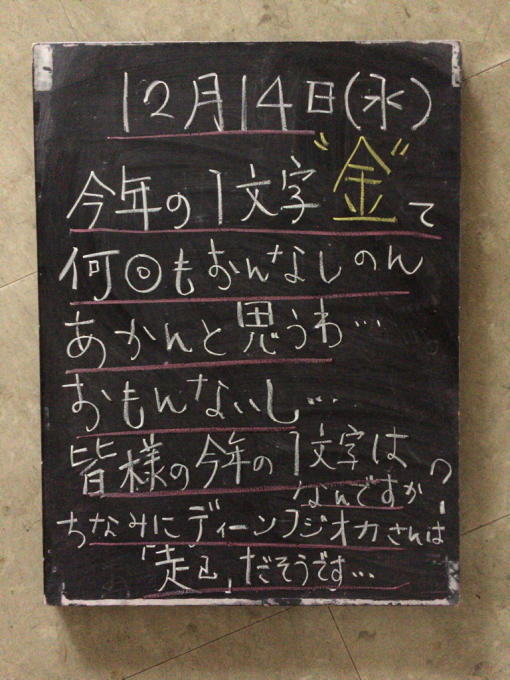 12月14日(水)
今年の1文字"金"て
何回もおんなしのん
あかんと思うわ…
おもんないし…
皆様の今年の1文字は
なんですか?
ちなみにディーンフジオカさんは
「起」だそうです…